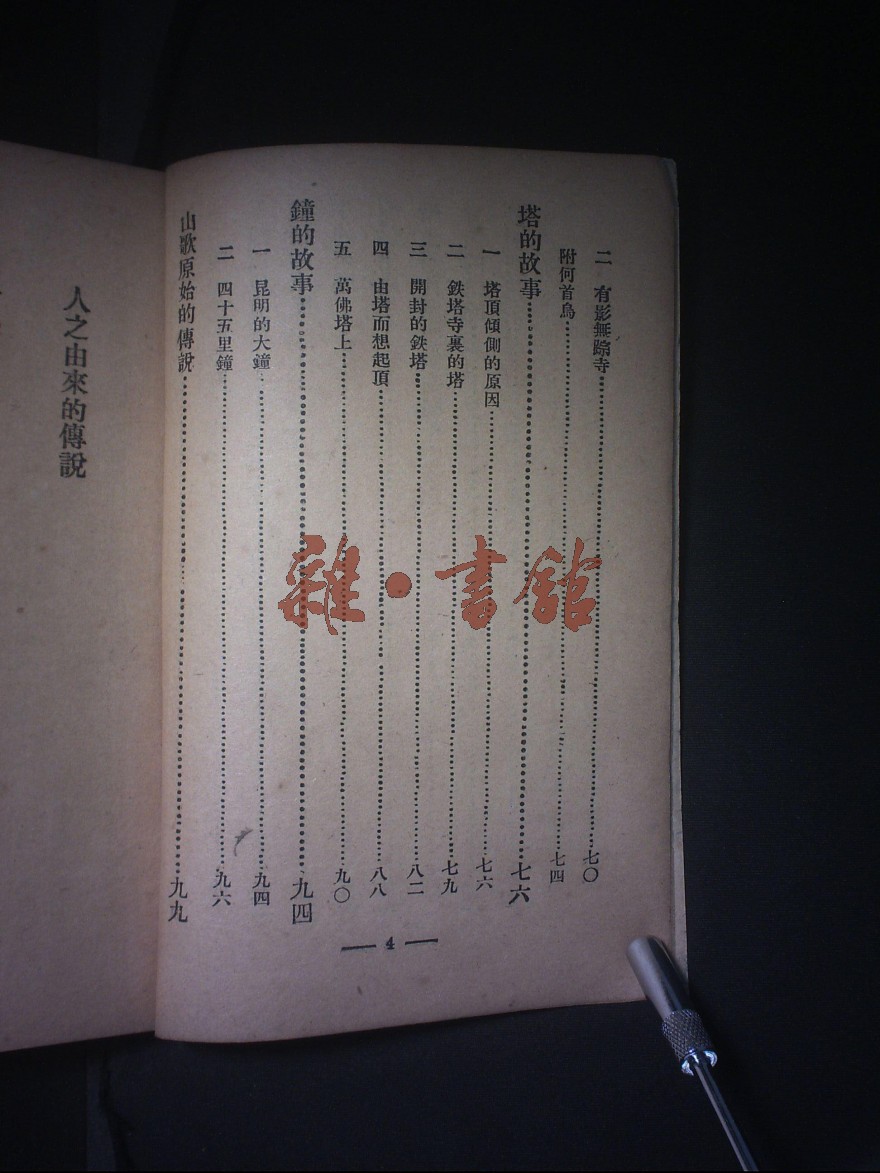 二　有影無踪寺……七〇
附何首烏……七四
塔的故事……七六
一　塔頂傾側的原因……七六
二　鉄塔寺裏的塔……七九
三　開封的鉄塔……八二
四　由塔而想起頂……八八
五　萬佛塔上……九〇
鐘的故事……九四
一　昆明的大鐘……九四
二　四十五里鐘……九六
山歌原始的傳說……九九
— 4 —
人之由來的傳說
雜·書館